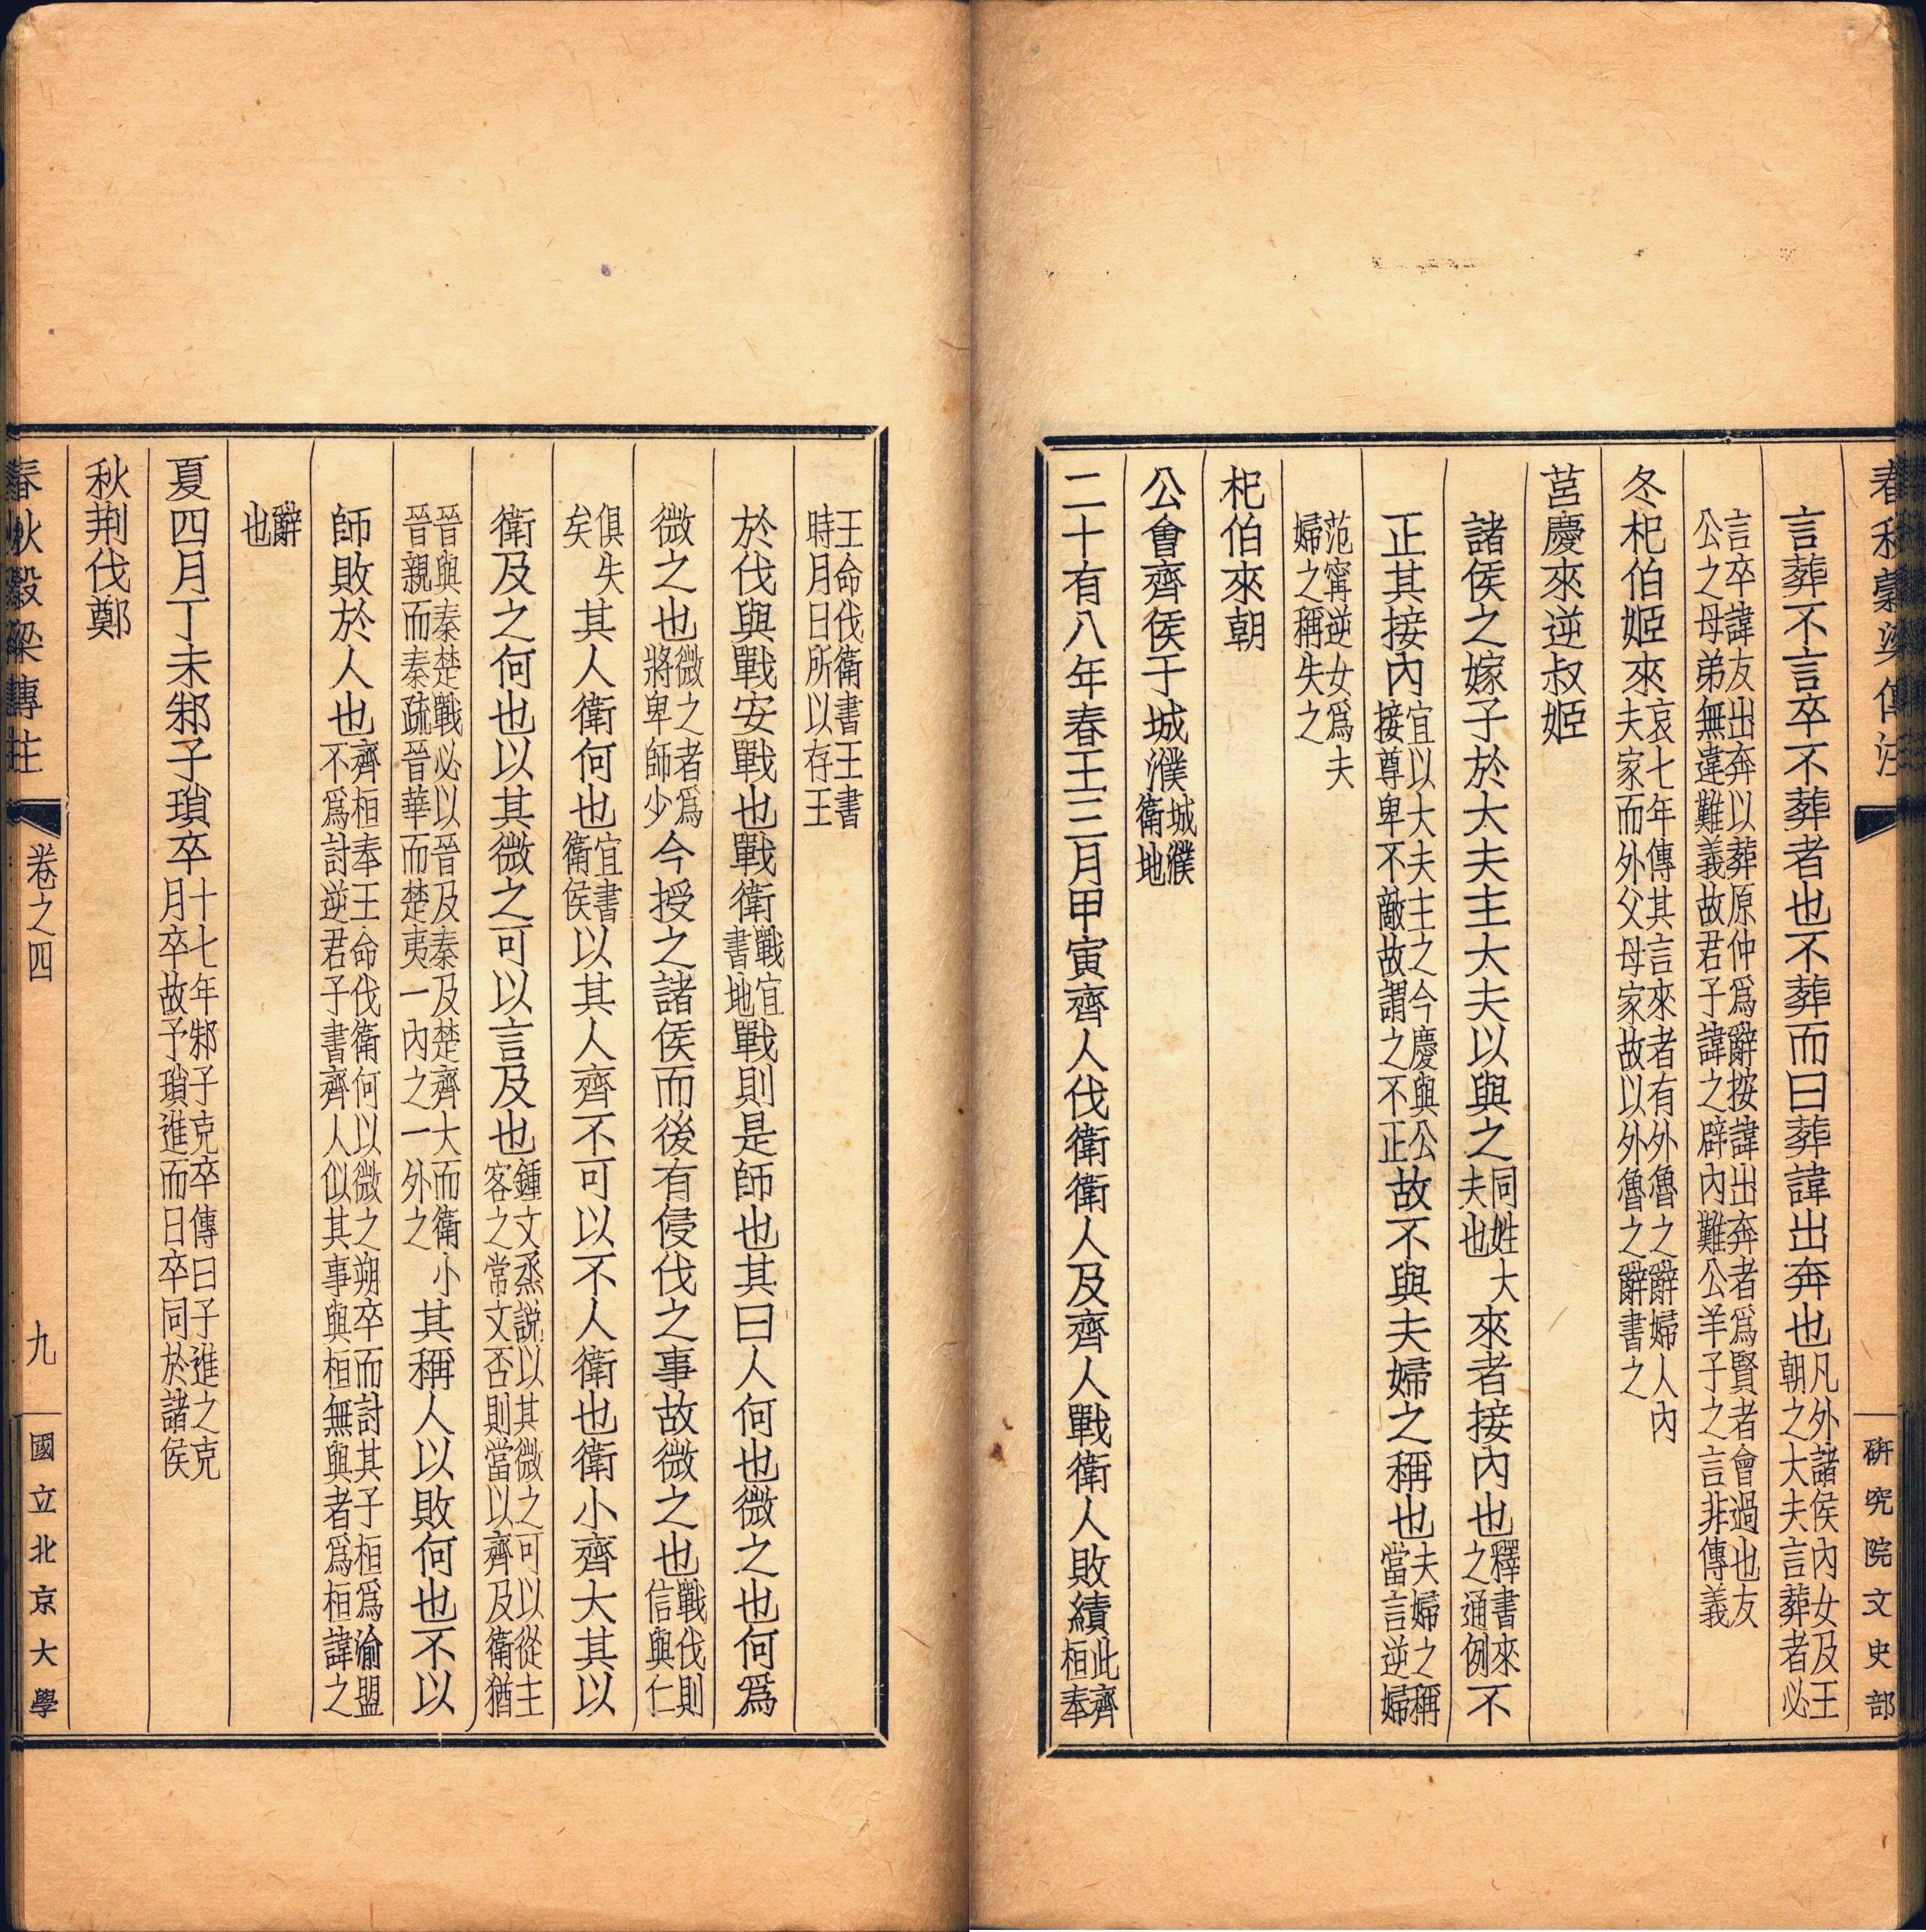 春秋穀梁傳注
研究院文史部
言葬不言卒不葬者也不葬而曰葬諱出奔也凡外諸侯內女及王朝之大夫言葬者必
言卒諱友出奔以葬原仲爲辭按諱出奔者爲賢者會過也友公之母弟無違難義故君子諱之辟內難公羊子之言非傳義
冬杞伯姬來哀七年傳其言來者有外魯之辭婦人內夫家而外父母家故以外魯之辭書之
莒慶來逆叔姬
諸侯之嫁子於大夫主大夫以與之同姓大夫也來者接內也釋書來之通例不
正其接內宜以大夫主之今慶與公接尊卑不敵故謂之不正故不與夫婦之稱也夫婦之稱當言逆婦
范甯逆女爲夫婦之稱失之
杞伯來朝
公會齊侯于城濮城濮衛地
二十有八年春王三月甲寅齊人伐衛衛人及齊人戰衛人敗績此齊桓奉
王命伐衛書王書時月日所以存王
於伐與戰安戰也戰衛戰宜書地戰則是師也其曰人何也微之也何爲
微之也微之者爲將卑師少今授之諸侯而後有侵伐之事故微之也戰伐則信與仁
俱失矣其人衛何也宜書衛侯以其人齊不可以不人衛也衛小齊大其以
衛及之何也以其微之可以言及也鍾文烝說以其微之可以從主客之常文否則當以齊及衛猶
晉與秦楚戰必以晉及秦及楚齊大而衛小晉親而秦疏晉華而楚夷一內之一外之其稱人以敗何也不以
師敗於人也齊桓奉王命伐衛何以微之朔卒而討其子桓爲渝盟不爲討逆君子書齊人似其事與桓無與者爲桓諱之
辭也
夏四月丁未邾子瑣卒十七年邾子克卒傳曰子進之克月卒故予瑣進而日卒同於諸侯
秋荆伐鄭
春秋穀梁傳注
卷之四
九
國立北京大學